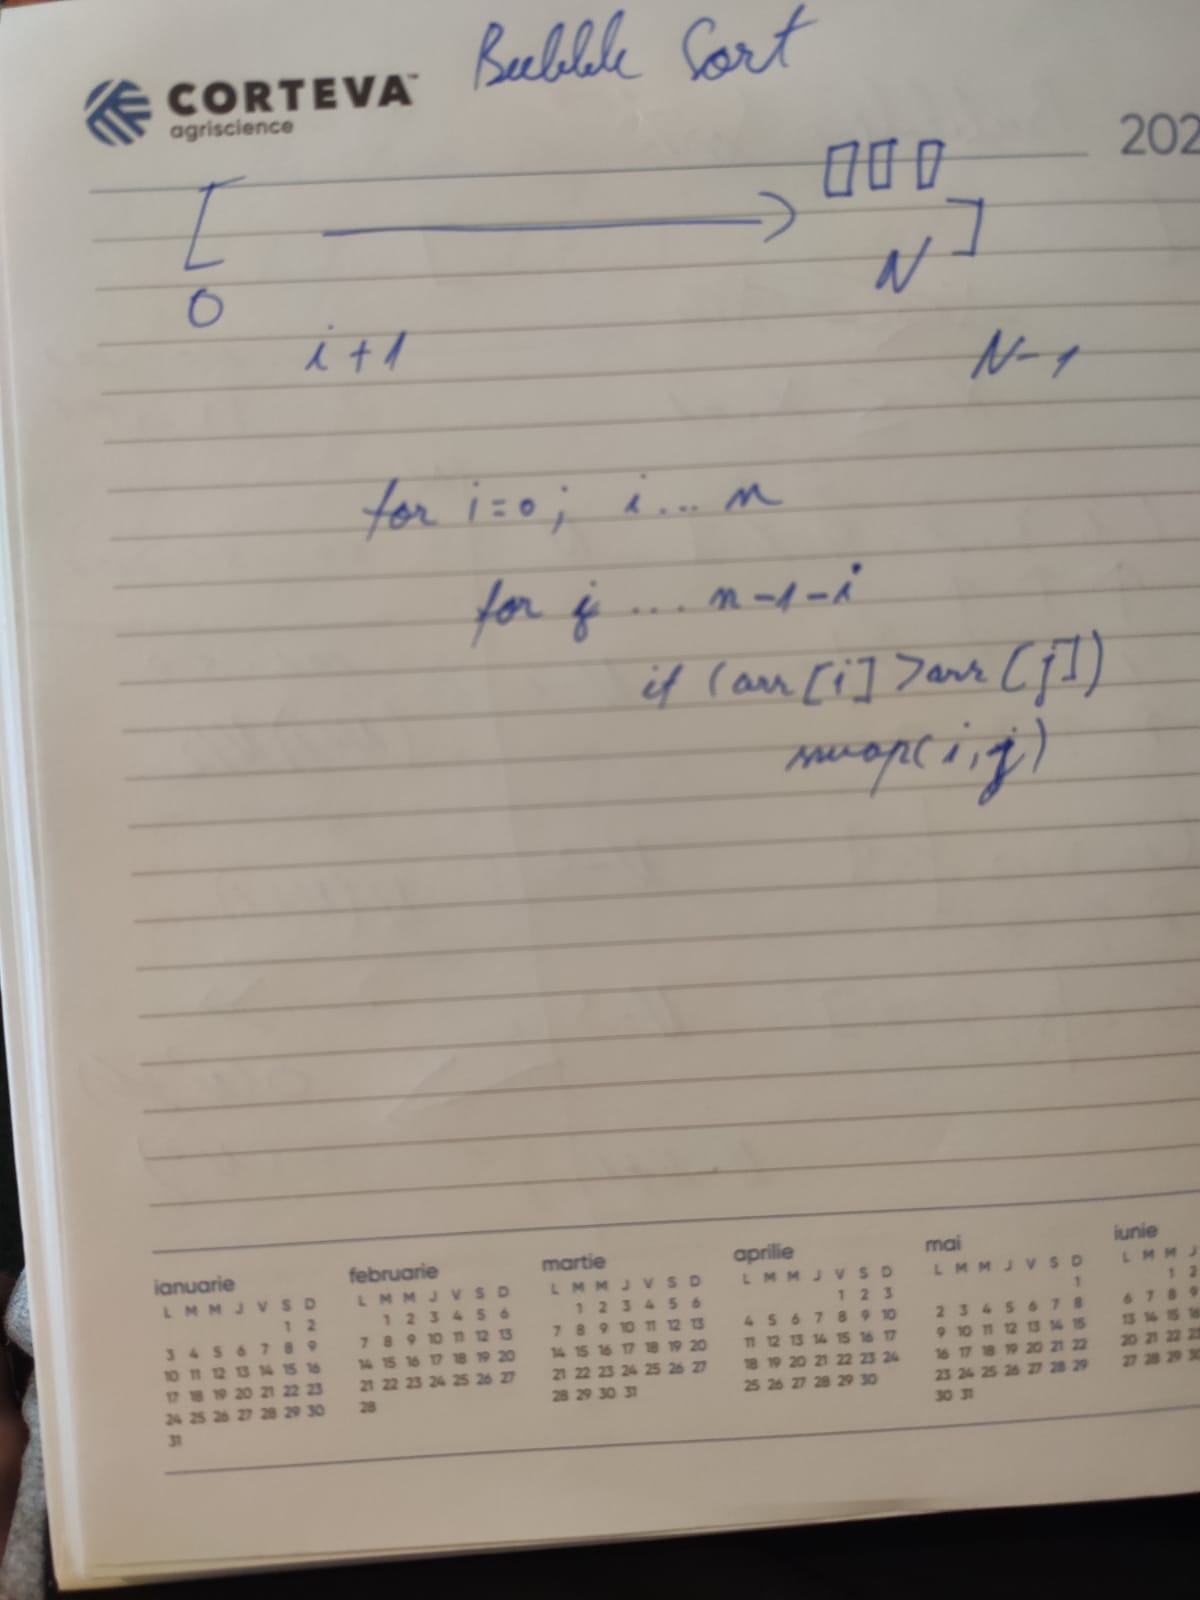 Bubble Sort
CORTEVA™
agriscience
202
[ → ]
0 N
i+1 N-1
for i=0; i... n
for j ... n-1-i
if (arr[i] > arr[j])
swap(i,j)
ianuarie
L M M J V S D
1 2
3 4 5 6 7 8 9
10 11 12 13 14 15 16
17 18 19 20 21 22 23
24 25 26 27 28 29 30
31
februarie
L M M J V S D
1 2 3 4 5 6
7 8 9 10 11 12 13
14 15 16 17 18 19 20
21 22 23 24 25 26 27
28
martie
L M M J V S D
1 2 3 4 5 6
7 8 9 10 11 12 13
14 15 16 17 18 19 20
21 22 23 24 25 26 27
28 29 30 31
aprilie
L M M J V S D
1 2 3
4 5 6 7 8 9 10
11 12 13 14 15 16 17
18 19 20 21 22 23 24
25 26 27 28 29 30
mai
L M M J V S D
1
2 3 4 5 6 7 8
9 10 11 12 13 14 15
16 17 18 19 20 21 22
23 24 25 26 27 28 29
30 31
iunie
L M M J
1 2
6 7 8 9
13 14 15 16
20 21 22 23
27 28 29 30